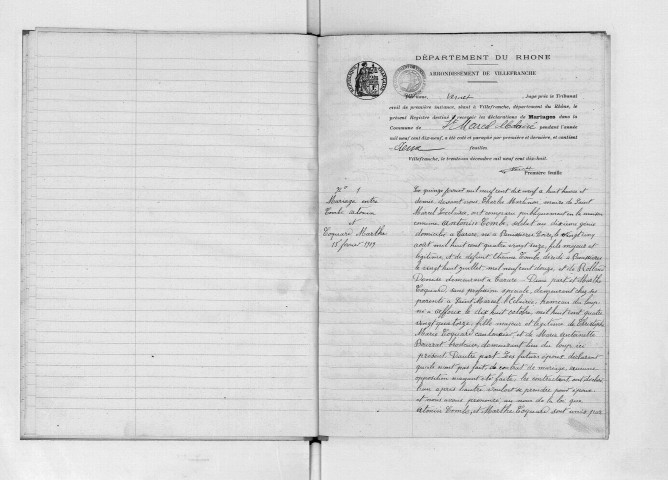 DÉPARTEMENT DU RHONE
ARRONDISSEMENT DE VILLEFRANCHE
Par nous, Juge près le Tribunal
civil de première instance, séant à Villefranche, département du Rhône, le
présent Registre destiné à recevoir les déclarations de Mariages dans la
Commune de St Marcel l'Eclairé pendant l'année
mil neuf cent dix-neuf, a été coté et paraphé par première et dernière, et contient
feuilles.
Villefranche, le trentième décembre mil neuf cent dix-huit.
Première feuille
No 1
Mariage entre
Combe Antonin
et
Coquard Marthe
15 février 1919
Le quinze février mil neuf cent dix neuf à huit heures et
demie devant nous Charles Martinon, maire de Saint
Marcel l'Eclairé, ont comparu publiquement en la maison
commune Antonin Combe, soldat au dixième génie
domicilié à Tarare, né à Panissières Loire, le vingt cinq
août mil huit cent quatre vingt onze, fils majeur et
légitime, et de défunt Etienne Combe décédé à Panissières
le vingt huit juillet mil neuf cent douze, et de Rolland
Denise demeurant à Tarare - D'une part et Marthe
Coquard, sans profession spéciale, demeurant chez ses
parents à Saint Marcel l'Eclairé, hameau du loup
né à Affoux le dix huit octobre mil huit cent quatre
vingt quatorze, fille majeure et légitime de Christophe
Marie Coquard cantonnier et de Marie Antoinette
brodeuse, demeurant lieu du loup ici
présent D'autre part. Les futurs époux déclarent
qu'ils n'ont pas fait de contrat de mariage, aucune
opposition n'ayant été faite, les contractants ont déclaré
l'un après l'autre vouloir se prendre pour époux
et nous avons prononcé au nom de la loi que
Antonin Combe, et Marthe Coquard sont unis par